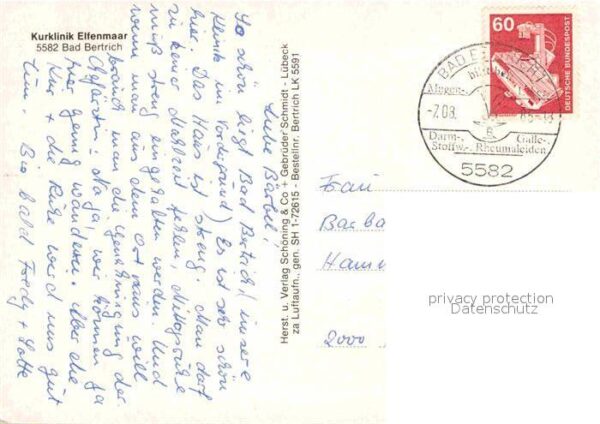 Kurklinik Elfenmaar
5582 Bad Bertrich
Liebe Bärbel!
So schön liegt Bad Bertrich (unsere
Klinik im Vordergrund) Es ist sehr schön
hier. Das Haus ist streng. Man darf
in keiner Mahlzeit fehlen, Mittagsruhe
muß streng eingehalten werden. Und
wenn man aus dem Ort raus will
braucht man die Genehmigung der
Na ja, wir können ja
hier genug wandern. Aber die
Kur + die Ruhe wird uns gut
tun. Bis bald Fredy + Lotte
Herst. u. Verlag Schöning & Co + Gebrüder Schmidt - Lübeck
za Luftaufn., gen. SH 1-72615 - Bestellnr. Bertrich LK 5591
60
DEUTSCHE BUNDESPOST
BAD BERTRICH
Magen-,
-7.08.
Darm-, Galle-,
Stoffw.-, Rheumaleiden
5582
Frau
Barba
Hamm
2000
privacy protection
Datenschutz